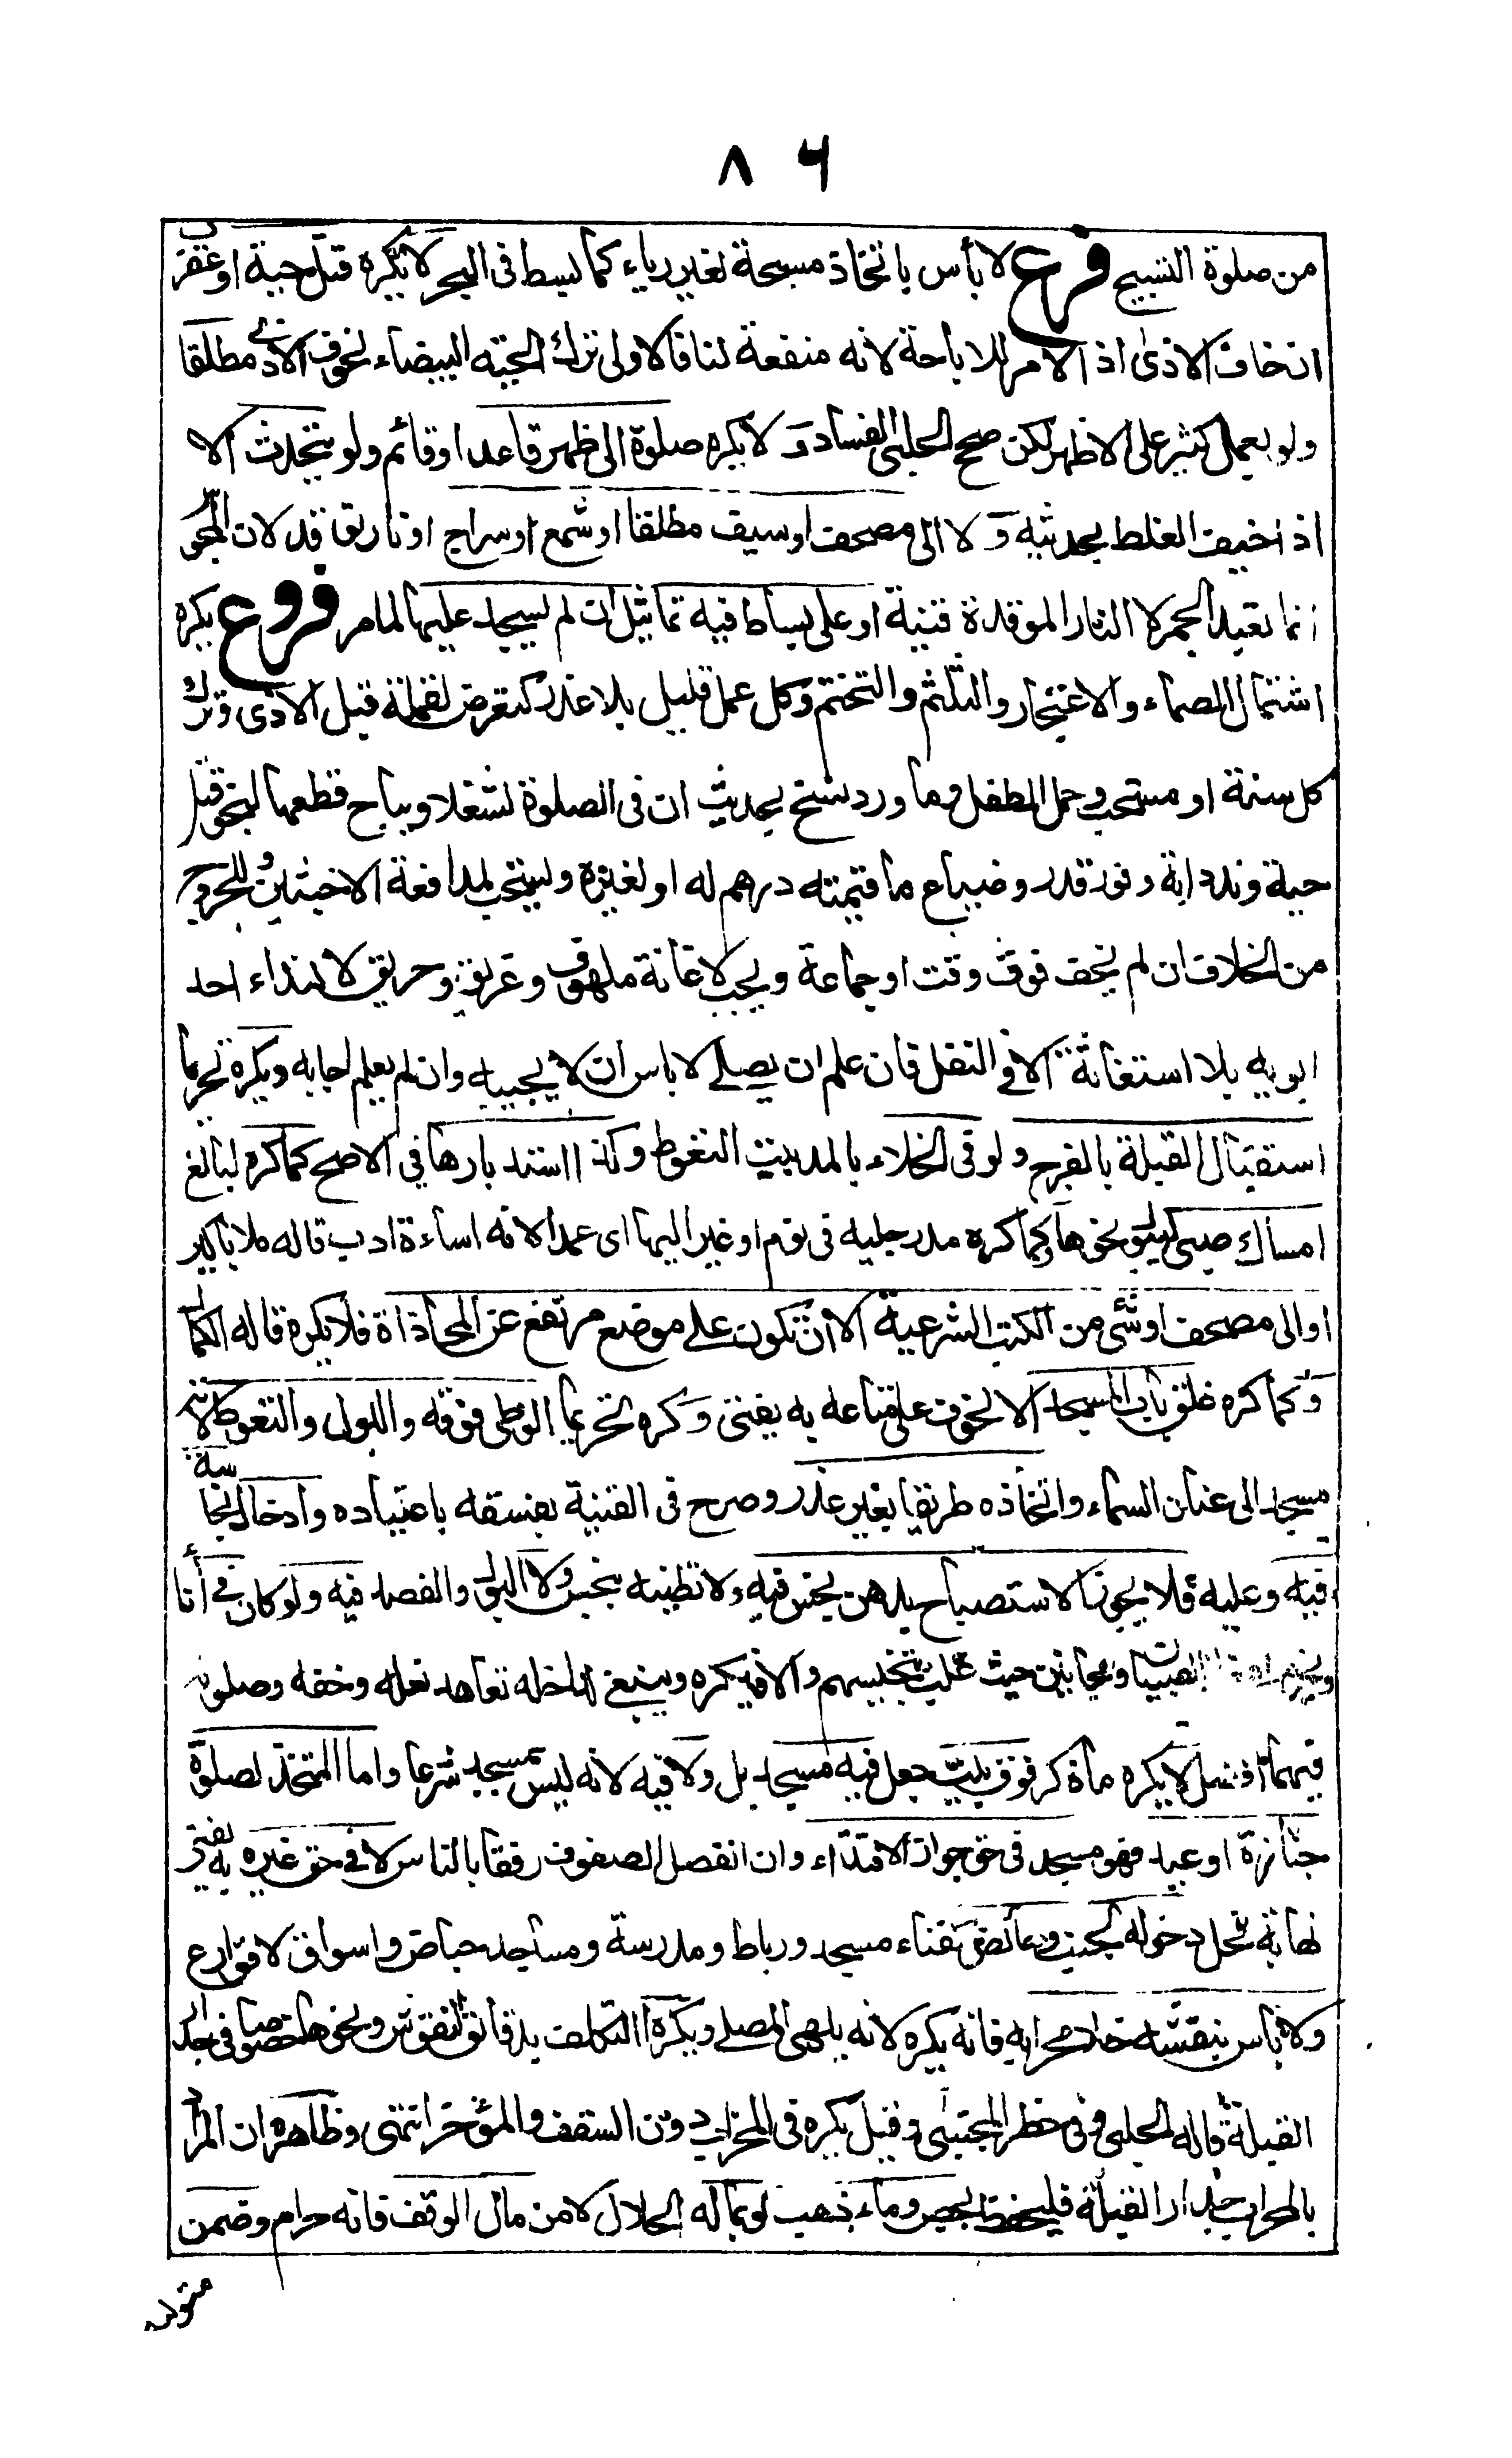 ٨٦
من صلوة التسبيح فرع لا بأس باتخاذ مسبحة لغير رياء كما بسط فى البحر لا يكره قتل حية او عقرب
ان خاف الاذى اذ الامر للاباحة لانه منفعة لنا فالاولى ترك الحية البيضاء لخوف الاذى مطلقا
ولو بعمل كثير على الاظهر لكن صحح الحلبى الفساد و لا يكره صلوة الى ظهر قاعد او قائم ولو يتحدث الا
اذ اخيف الغلط بحديثه و لا الى مصحف او سيف مطلقا او شمع او سراج او نار توقد لان المجوس
انما تعبد الجمر لا النار الموقدة قنية او على بساط فيه تماثيل ان لم يسجد عليها لما مر فروع يكره
اشتمال الصماء والاعتجار والتلثم والتنخم وكل عمل قليل بلا عذر كتعرض لقملة قبل الاذى وترك
كل سنة او مستحب وحمل الطفل وما ورد نسخ بحديث ان فى الصلوة لشغلا ويباح قطعها لنحو قتل
حية وند دابة وفور قدر وضياع ما قيمته درهم له او لغيره ويستحب لمدافعة الاخبثين وللخروج
من الخلاف ان لم يخف فوت وقت او جماعة ويجب لاغاثة ملهوف وغريق وحريق لا لنداء احد
ابويه بلا استغاثة الا فى النفل فان علم انه يصلى لا باس ان لا يجيبه وان لم يعلم اجابه ويكره تحريما
استقبال القبلة بالفرج ولو فى الخلاء بالمد بيت التغوط وكذا استدبارها فى الاصح كما كره لبالغ
امساك صبى ليبول نحوها وكما كره مد رجليه فى نوم او غيره اليها اى عمدا لانه اساءة ادب قاله ملا باكير
او الى مصحف او شئ من الكتب الشرعية الا ان تكون على موضع مرتفع عن المحاذاة فلا يكره قاله الكمال
وكما كره غلق باب المسجد الا لخوف على متاعه به يفتى وكره تحريما الوطى فوقه والبول والتغوط لانه
مسجد الى عنان السماء واتخاذه طريقا بغير عذر وصرح فى القنية بفسقه باعتياده وادخال نجاسة
فيه وعليه فلا يجوز الاستصباح بدهن نجس فيه ولا تطيينه بنجس ولا البول والفصد فيه ولو كان فى اناء
ويحرم ادخال الصبيان ومجانين حيث غلب تنجيسهم والا فيكره وينبغى لداخله تعاهد نعله وخفه وصلوته
فيهما افضل لا يكره ما ذكر فوق بيت جعل فيه مسجد بل ولا فيه لانه ليس بمسجد شرعا واما المتخذ لصلوة
جنازة او عيد فهو مسجد فى حق جواز الاقتداء وان انفصل الصفوف رفقا بالناس لا فى حق غيره به يفتى
نهاية فحل دخوله لجنب وحائض كفناء مسجد ورباط ومدرسة ومساجد حياض واسواق لا قوارع
ولا باس بنقشه خلا محرابه فانه يكره لانه يلهى المصلى ويكره التكلف بدقائق النقوش ونحوها خصوصا فى جدار
القبلة قاله الحلبى وفى حظر المجتبى وقيل يكره فى المحراب دون السقف والمؤخر انتهى وظاهره ان المراد
بالمحراب جدار القبلة فليحفظ بجص وماء ذهب لو بماله الحلال لا من مال الوقف فانه حرام وضمن
متوليه